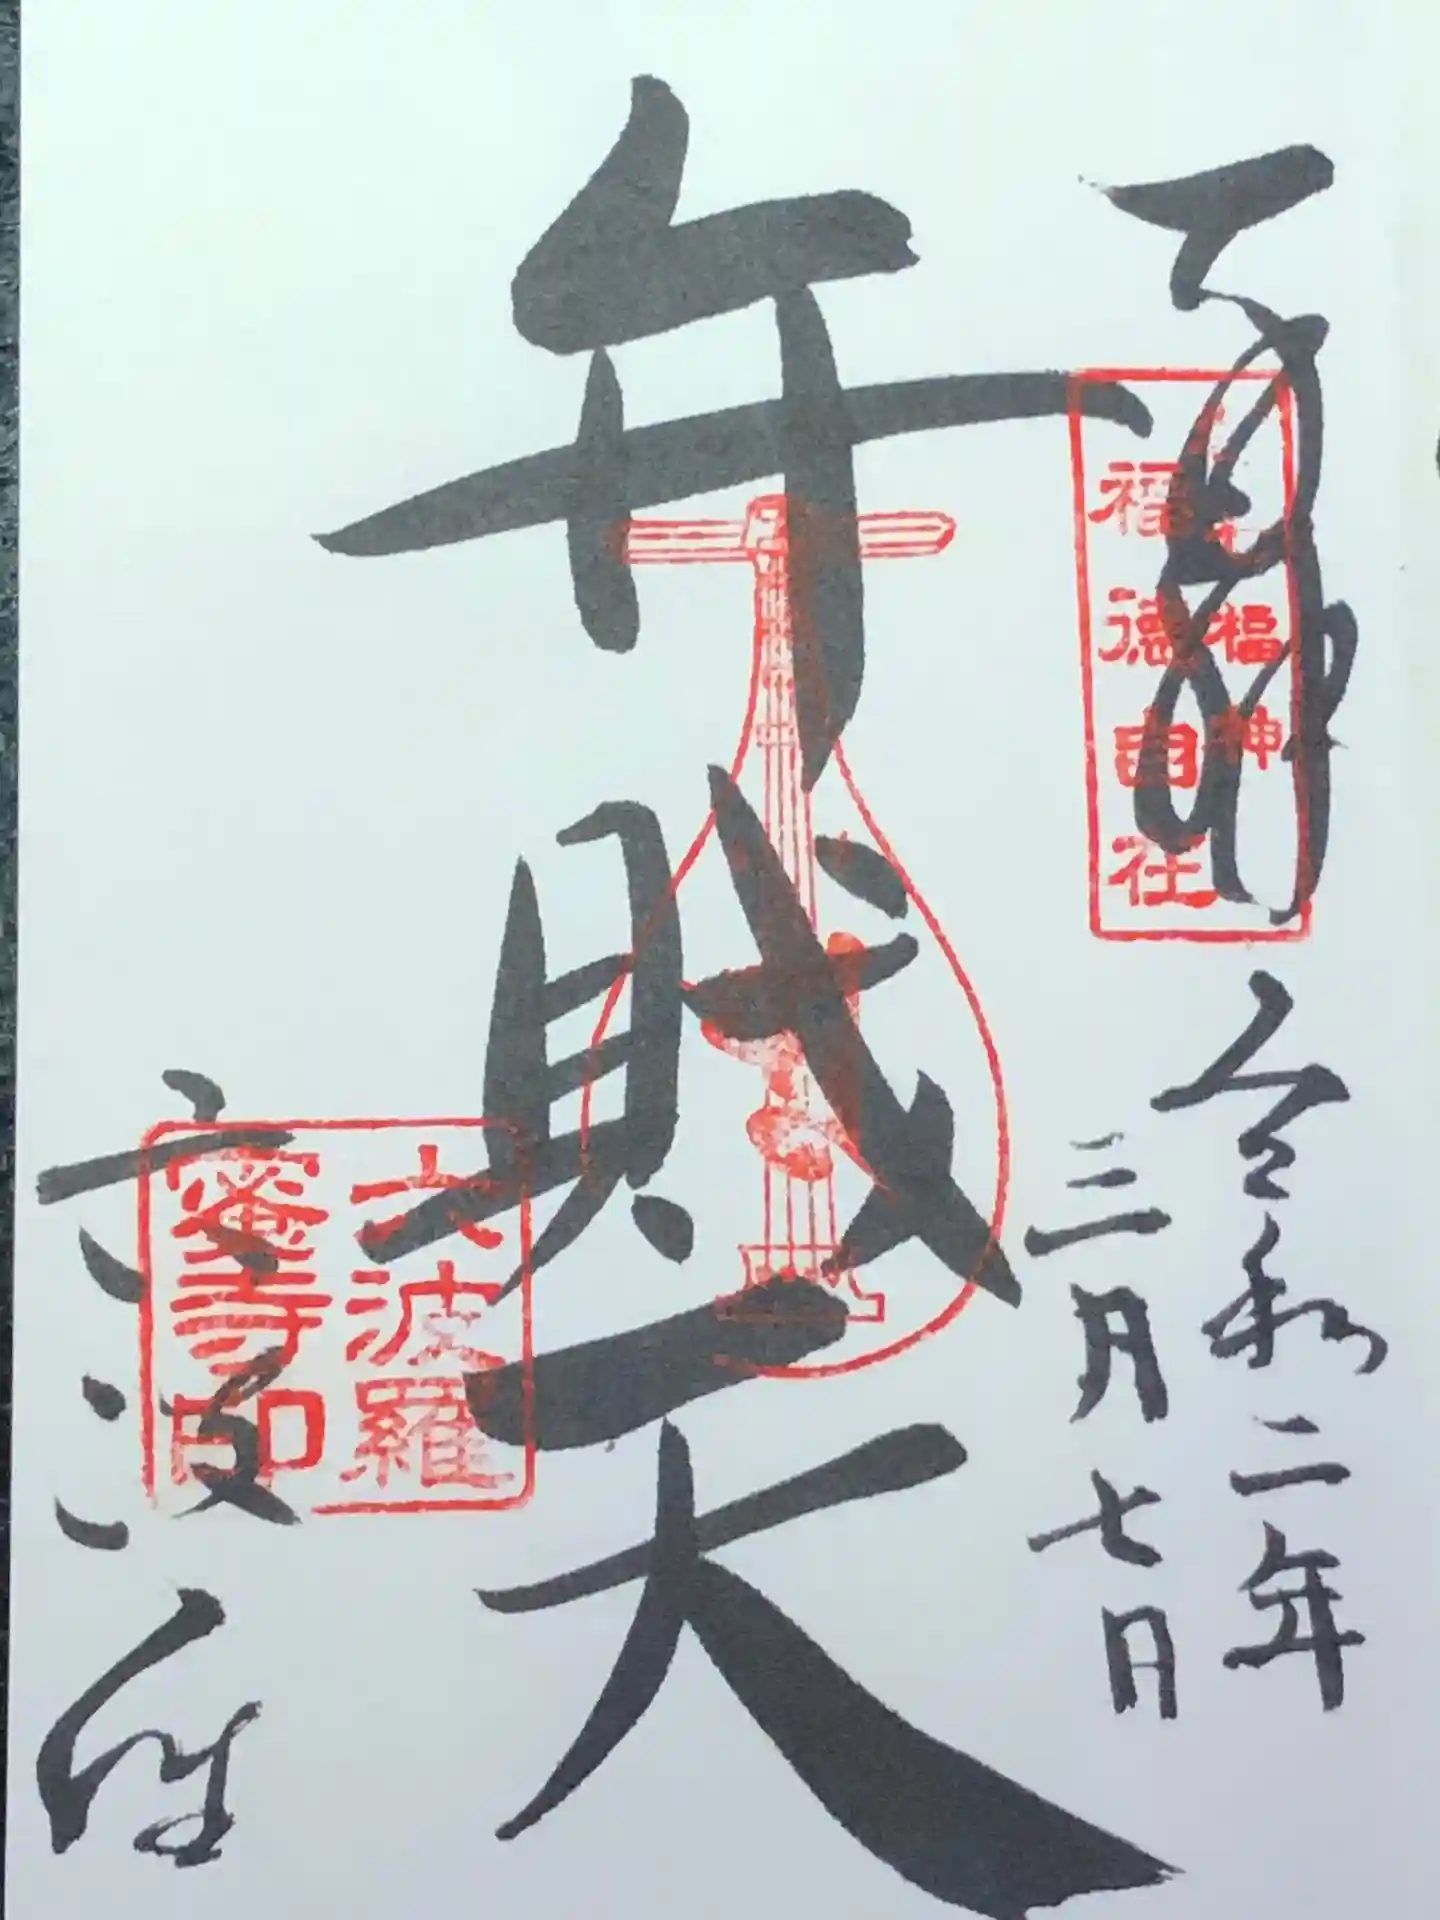 奉拝
令和二年
三月七日
七福神
福徳自在
弁財天
六波羅
蜜寺印
六波羅